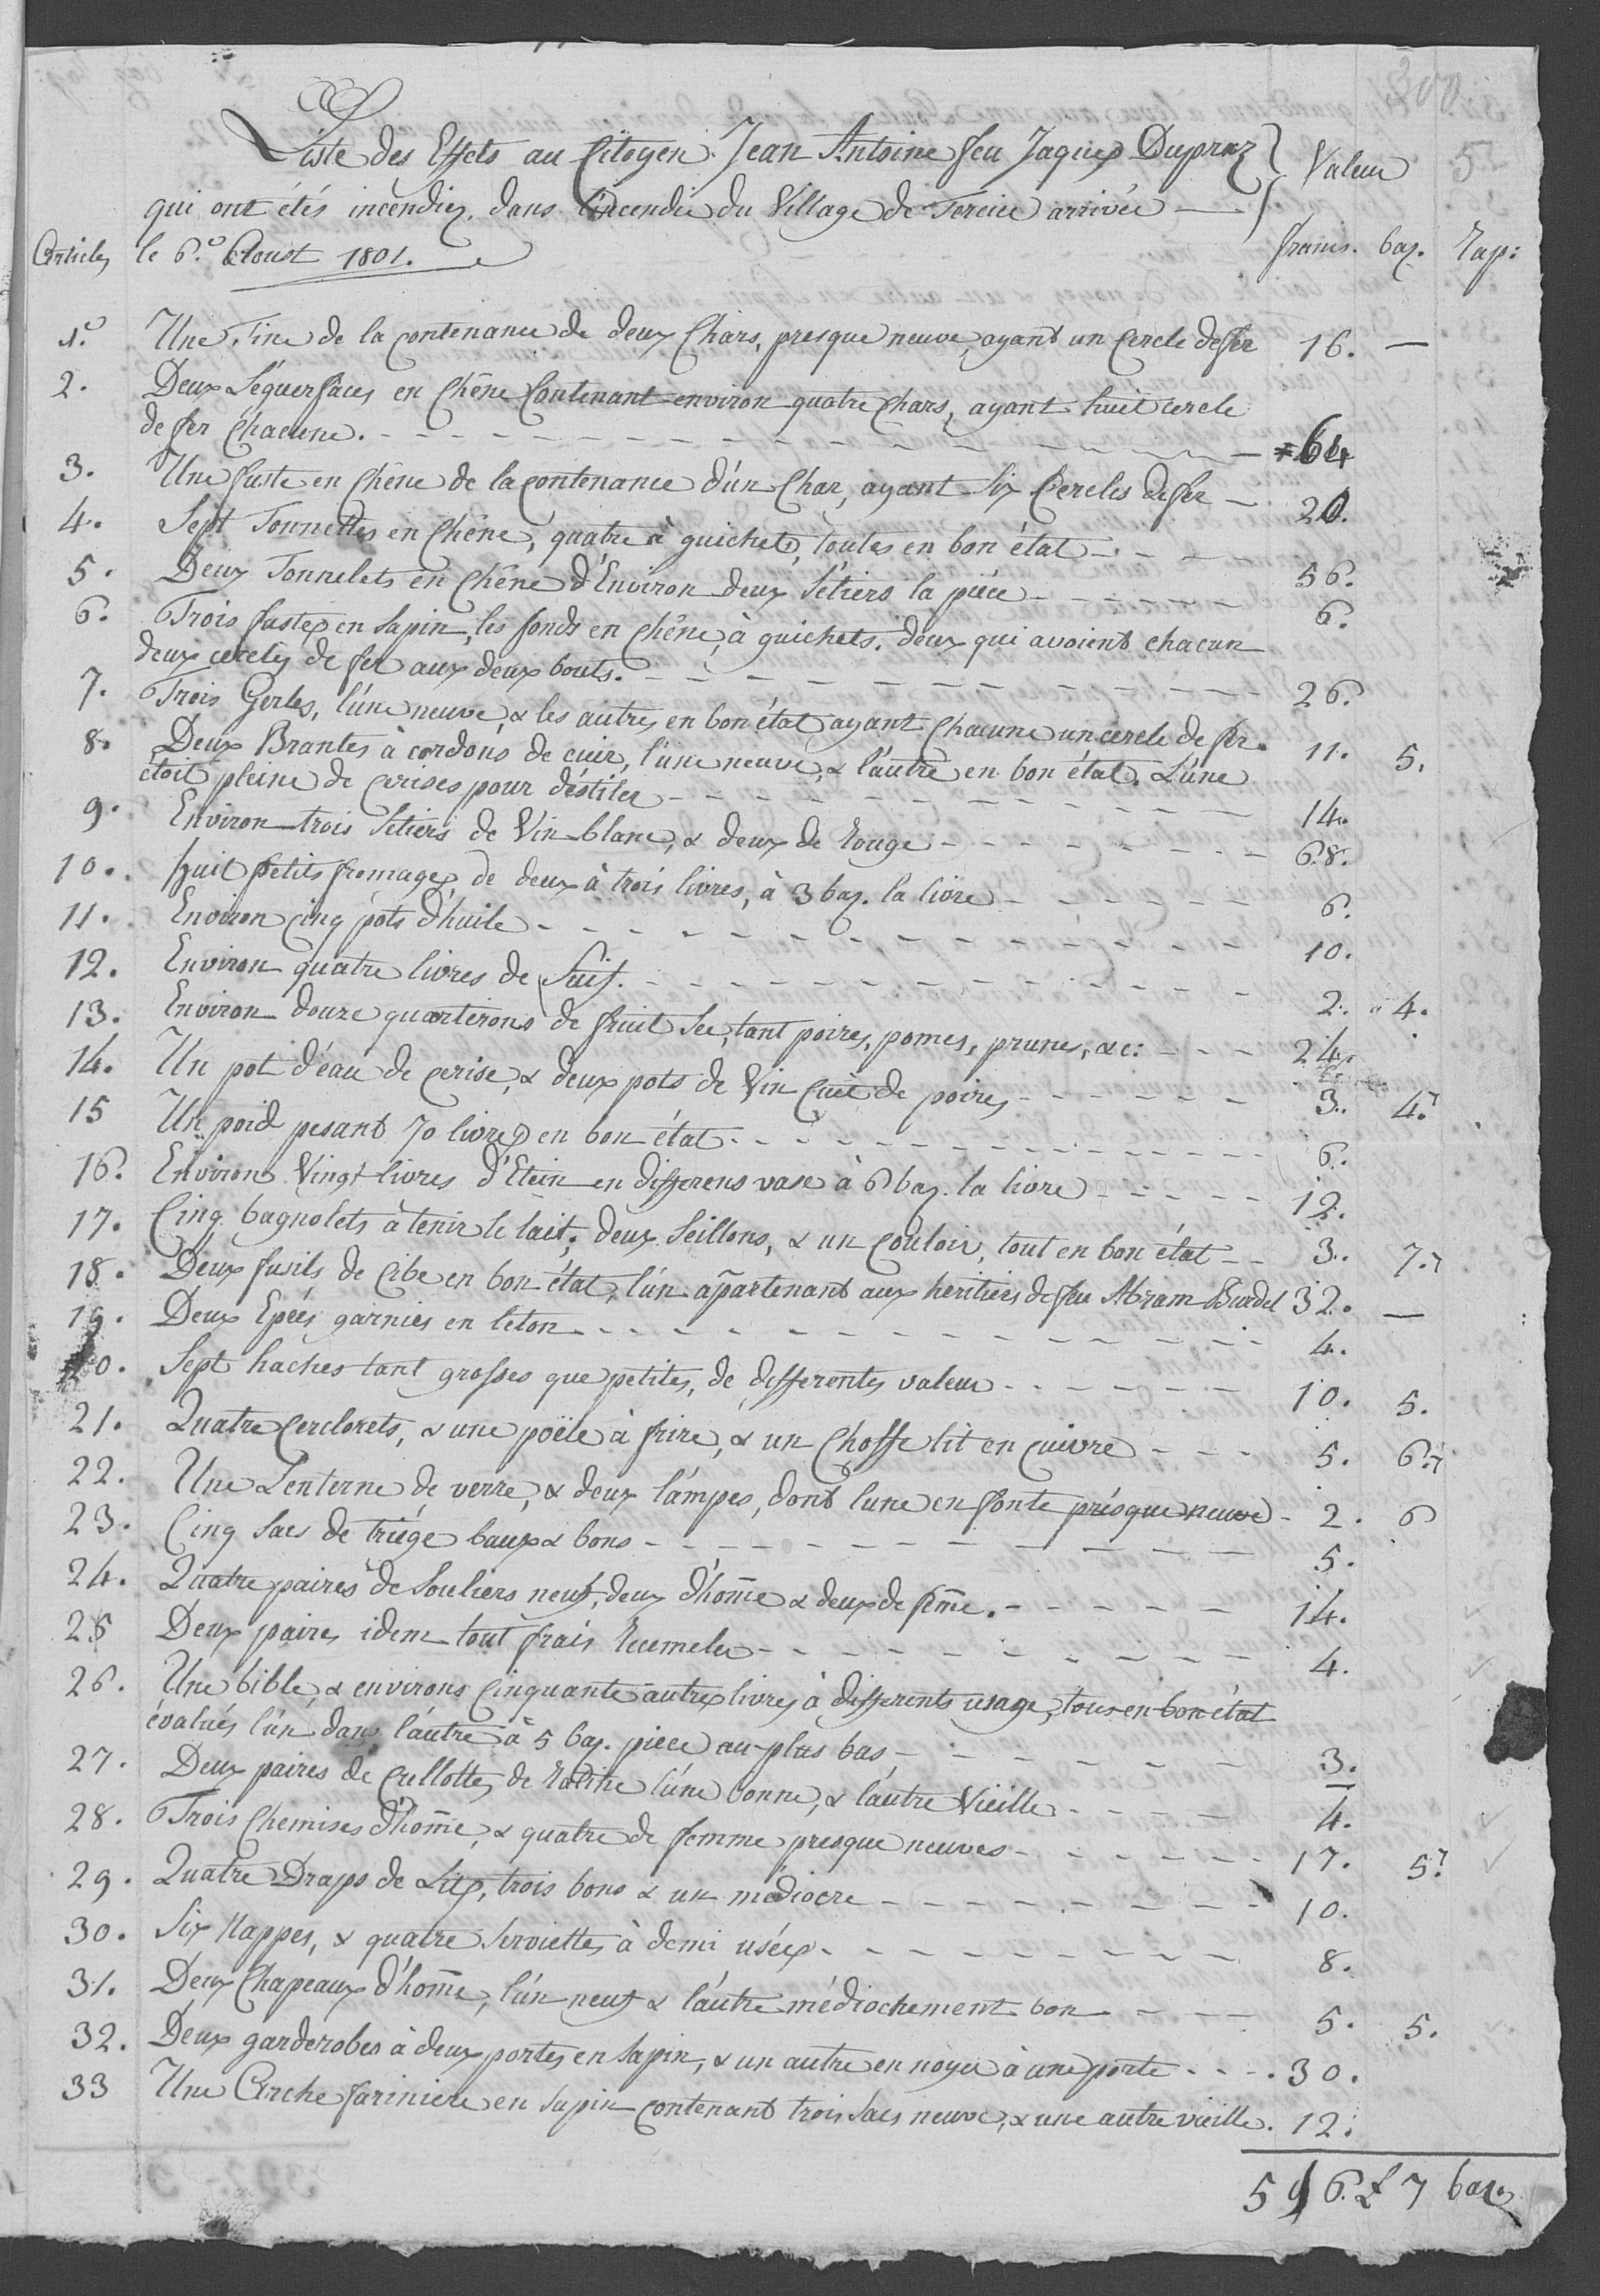 300
5
Liste des Effets au Citoyen Jean Antoine feu Jaques Dupraz } Valeur
qui ont étés incendiez dans l'incendie du Village de arrivée —
Articles le 6.e Aoust 1801. francs. baz. rap:
1.o Une Tine de la contenance de deux Chars, presque neuve, ayant un Cercle de fer 16. —
2. Deux Léguerfaces en Chêne Contenant environ quatre Chars, ayant huit cercle
de fer Chacune. - - - 64
3. Une fuste en Chêne de la contenance d'un Char, ayant Six Cercles de fer - 20.
4. Sept Tonnettes en Chêne, quatre à guichet, toutes en bon état - - - 56.
5. Deux Tonnelets en Chêne d'Environ deux Sétiers la piéce - - - 6.
6. Trois fustes en Sapin, les fonds en Chêne, à guichets. deux qui avoient chacun
deux cercles de fer aux deux bouts. - - - 26.
7. Trois Gerles, l'une neuve, & les autres en bon état ayant Chacune un cercle de fer. 11. 5.
8. Deux Brantes à cordons de cuir, l'une neuve, & l'autre en bon état. L'une
étoit pleine de cerises pour déstiler - - - 14.
9. Environ trois Sétiers de Vin blanc, & deux de Rouge - - - 68.
10. huit petits fromages de deux à trois livres, à 3 baz. la livre - - - 6.
11. Environ Cinq pots d'huile - - - 10.
12. Environ quatre livres de Suif. - - - 2. 4.
13. Environ douze quarterons de fruit Sec, tant poires, pomes, prunes, &c: - - - 24.
14. Un pot d'éau de cerise, & deux pots de Vin Cuit de poires - - - 3. 4.
15 Un poid pesant 70 livres en bon état - - - 6.
16. Environs Vingt livres d'Etein en differens vase à 6 baz. la livre - - - 12.
17. Cinq bagnolets à tenir le lait, deux Seillons, & un Couloir, tout en bon état - - 3. 7.
18. Deux fusils de Cibe en bon état, l'un apartenant aux heritiers de feu Abram Burdet 32. —
19. Deux Epées garnies en leton - - - 4.
20. Sept haches tant grosses que petites, de differentes valeur - - - 10. 5.
21. Quatre Cerclorets, & une poële à frire, & un Choffe lit en Cuivre - - - 5. 6.
22. Une Lenterne de verre, & deux lampes, dont l'une en fonte présque neuve - 2. 6
23. Cinq Sacs de triége baux & bons - - - 5.
24. Quatre paires de Souliers neufs, deux d'hom̃e & deux de fem̃e. - - - 14.
25 Deux paires idem tout frais - - - 4.
26. Une bible, & environs Cinquante autres livres à differents usage, tous en bon état
évalués l'un dans l'autre à 5 baz. piece au plus bas - - - 3.
27. Deux paires de Cullottes de Ratine l'une bonne, & l'autre Vieille - - - 4.
28. Trois Chemises d'hom̃e, & quatre de femme presque neuves - - - 17. 5.
29. Quatre Draps de Lits, trois bons & un médiocre - - - 10.
30. Six Nappes, & quatre Serviettes à demi usées - - - 8.
31. Deux Chapeaux d'hom̃e, l'un neuf & l'autre médiochement bon - - - 5. 5.
32. Deux garderobes à deux portes en Sapin, & un autre en noyer à une porte - - - 30.
33 Une Arche fariniere en Sapin contenant trois Sacs neuve, & une autre vieille. 12.
596. £ 7 baz.